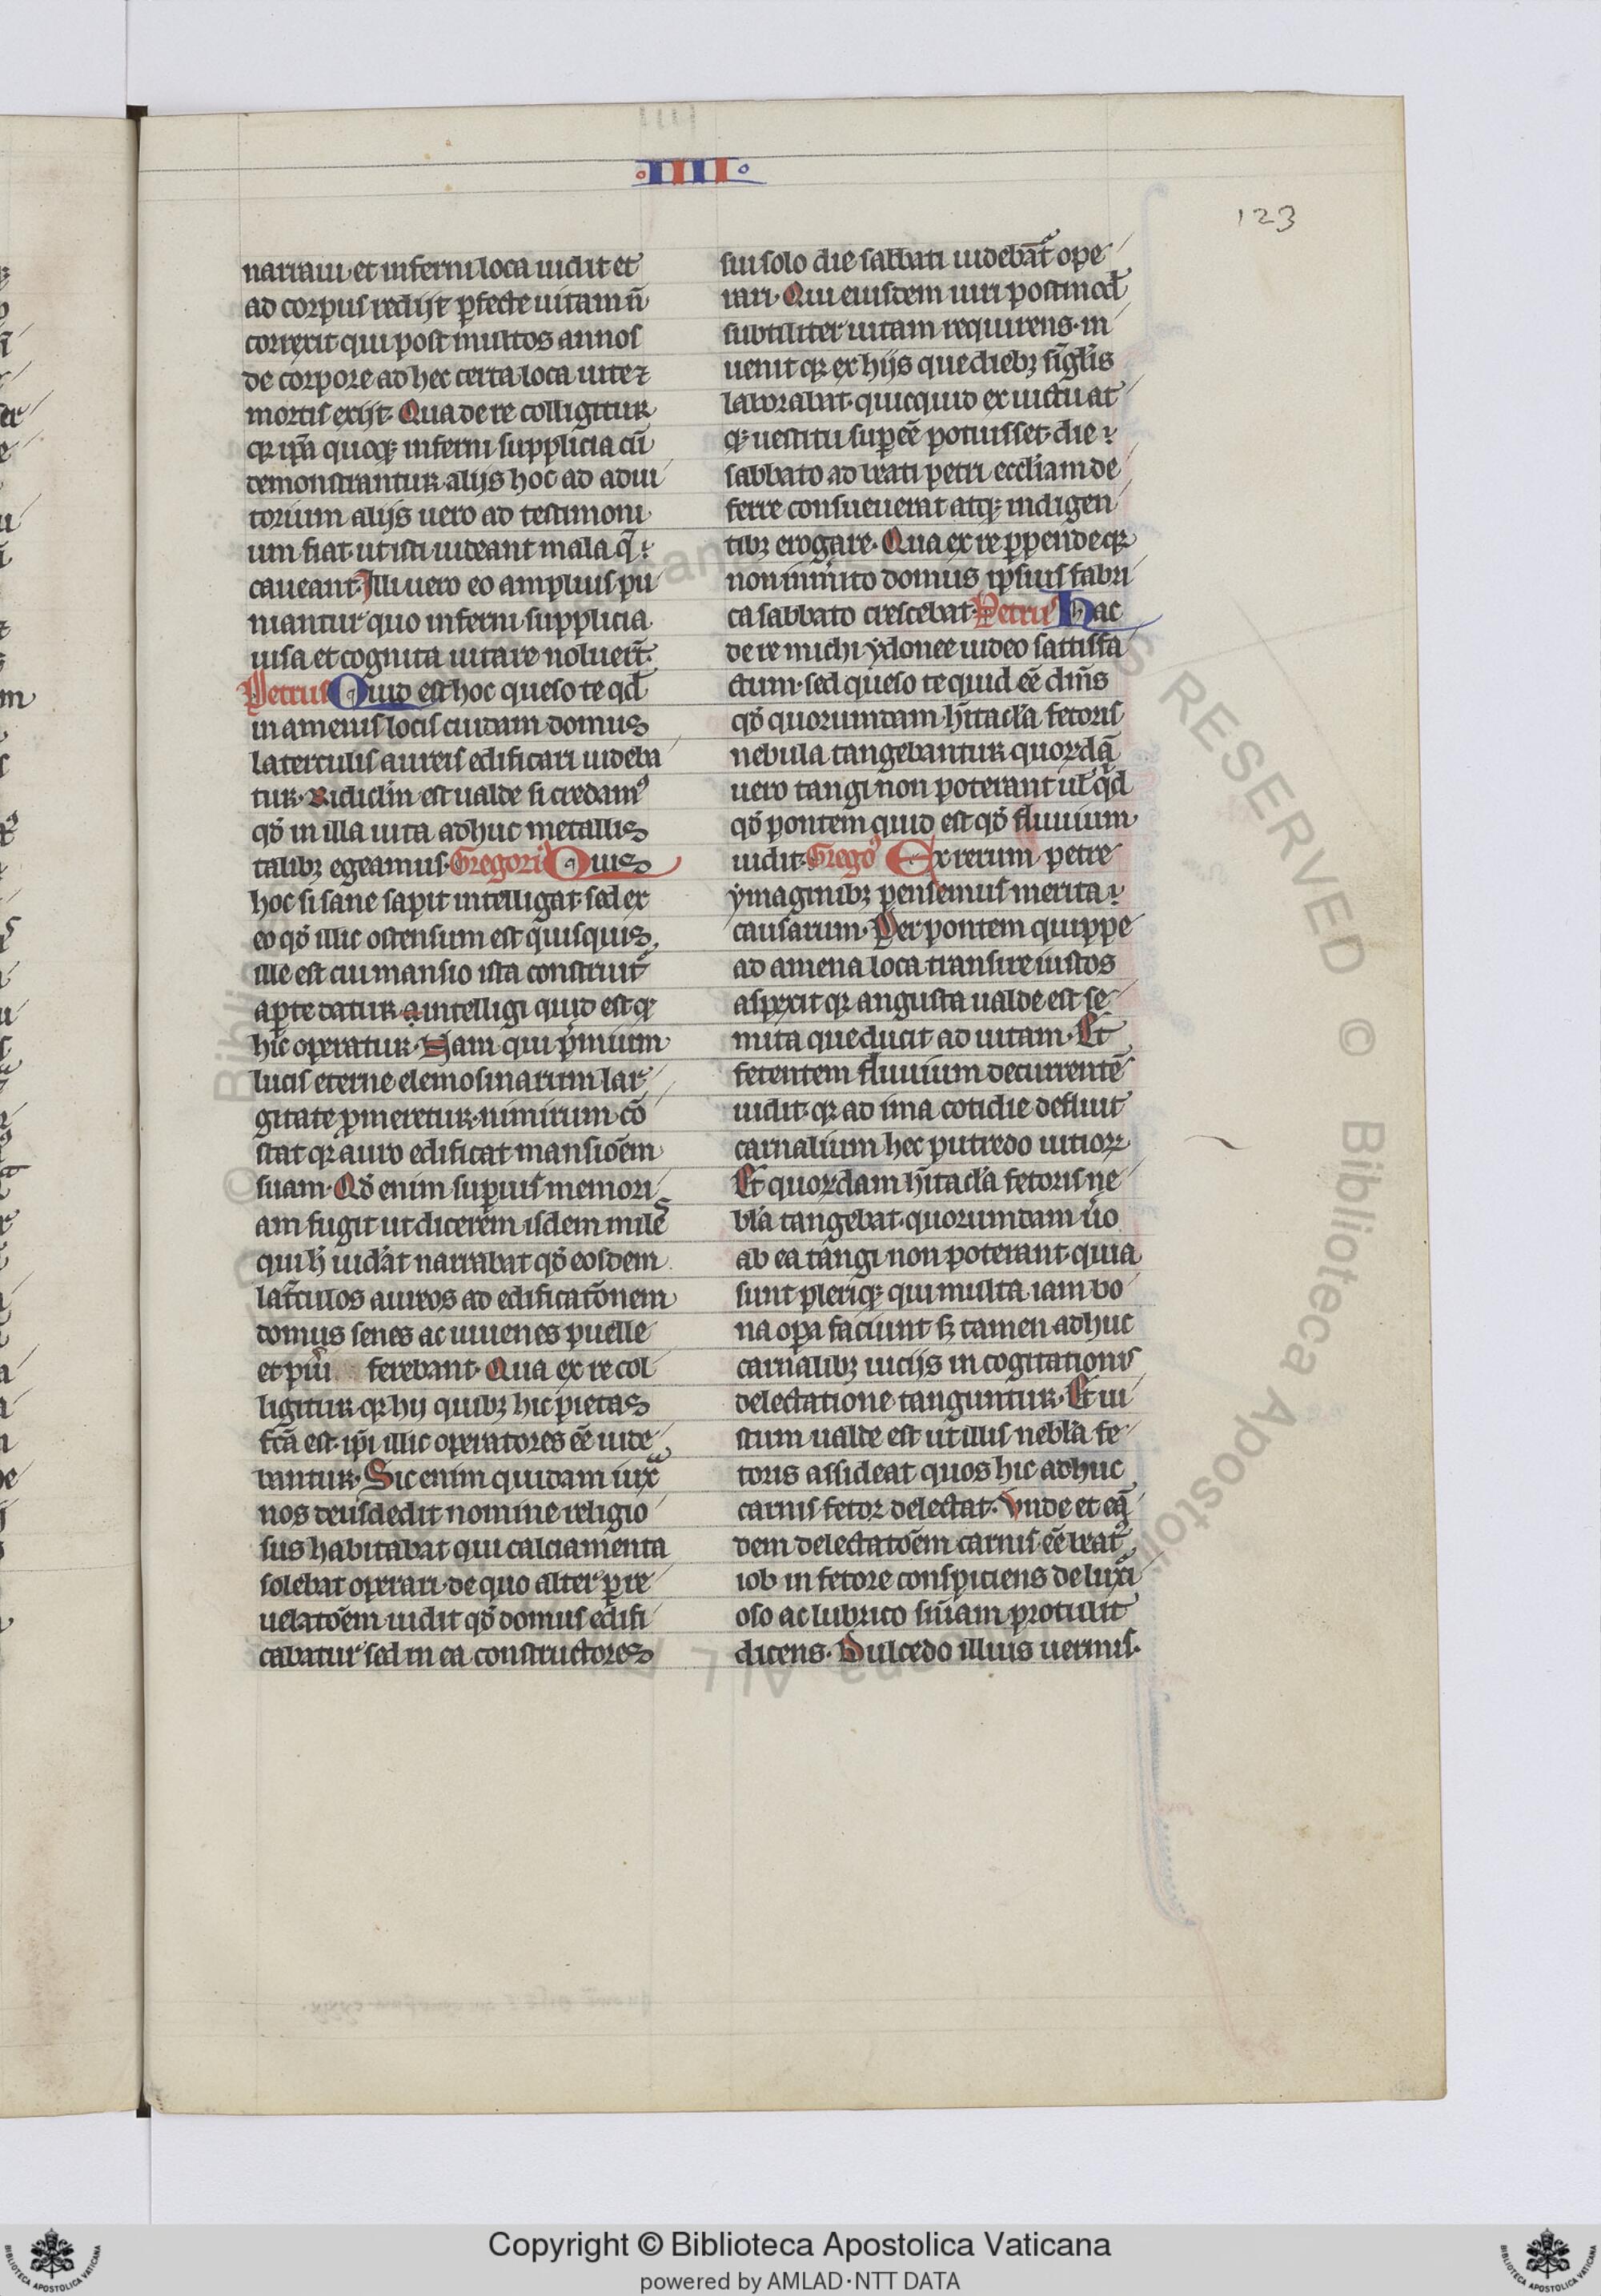 IIII
123
narraui et inferni loca uidit et
ad corpus redijt ꝑfecte uitam ñ
correxit qui post multos annos
de corpore ad hec certa loca uite ⁊
mortis exijt. Qua de re colligitur
qꝛ ip̃a quoqꝫ inferni supplicia cũ
demonstrantur alijs hoc ad adiu
torium alijs uero ad testimoni
um fiat. ut isti uideant mala q̃
caueant. Illi uero eo amplius pu
niantur quo inferni supplicia
uisa et cognita uitare noluer̃t.
Petrus Quid est hoc queso te qd̃
in amenis locis cuidam domus
laterculis aureis edificari uideba
tur. Ridicl̃m est ualde si credamꝰ
qd̃ in illa uita adhuc metallis
talibꝫ egeamus. Gregoriꝰ Quis
hoc si sane sapit intelligat. sed ex
eo qd̃ illic ostensum est quisquis
ille est cui mansio ista construit᷑
aꝑte datur intelligi quid est qd̃
hic operatur. Nam qui p̃mium
lucis eterne elemosinarum lar
gitate ꝓmeretur. nimirum cõ
stat qꝛ auro edificat mansiõem
suam. Qd̃ enim suꝑius memori
am fugit ut dicerem isdem miles
qui h̃ uid̃at narrabat qd̃ eosdem
lat̃culos aureos ad edificatõnem
domus senes ac iuuenes puelle
et pũi ferebant. Qua ex re col
ligitur qꝛ hij quibꝫ hic pietas
fc̃a est. ip̃i illic operatores eẽ uide
bantur. Sic enim quidam iuxᷓ
nos deusdedit nomine religio
sus habitabat qui calciamenta
solebat operari. de quo alter ꝑ re
uelatõem uidit qd̃ domus edifi
cabatur sed in ea constructores
sui solo die sabbati uidebãt᷑ ope
rari. Qui eiusdem uiri postmod̃
subtiliter uitam requirens. in
uenit qꝛ ex hijs que diebꝫ sĩglis
laborabat. quicquid ex uictu at
qꝫ uestitu suꝑeẽ potuisset. die
sabbato ad beati petri eccl̃iam de
ferre consueuerat atqꝫ indigen
tibꝫ erogare. Qua ex re ꝑpende qꝛ
non inm̃ito domus ipsius fabri
ca sabbato crescebat. Petrus Hac
de re michi ydonee uideo sattisfa
ctum. sed queso te quid eẽ dim̃s
qd̃ quorumdam hĩtacl̃a fetoris
nebula tangebantur quorꝺã
uero tangi non poterant ul̃ q̃d
qd̃ pontem quid est qd̃ fluuium
uidit. Gregoꝰ Ex rerum petre
ymaginibꝫ pensemus merita
causarum. Per pontem quippe
ad amena loca transire iustos
aspexit qꝛ angusta ualde est se
mita que ducit ad uitam. Et
fetentem fluuium decurrentẽ
uidit. qꝛ ad ima cotidie defluit
carnalium hec putredo uitioꝝ
Et quorꝺam hĩtacl̃a fetoris ne
bl̃a tangebat. quorumdam ũo
ab ea tangi non poterant. quia
sunt pleriqꝫ qui multa iam bo
na oꝑa faciunt sꝫ tamen adhuc
carnalibꝫ uicijs in cogitationis
delectatione tanguntur. Et iu
stum ualde est ut illis nebl̃a fe
toris assideat quos hic adhuc
carnis fetor delectat. Vnde et eã
dem delectatõem carnis. eẽ beatꝰ
iob in fetore conspiciens de luxͥi
oso ac lubrico sñiam protulit
dicens. Dulcedo illius uermis.
Copyright © Biblioteca Apostolica Vaticana
powered by AMLAD·NTT DATA